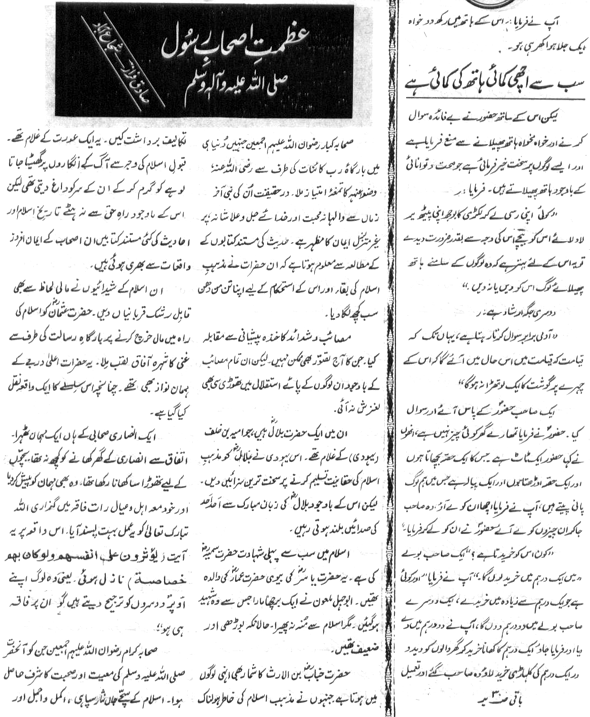 عظمتِ اصحابِ رسولؐ
صلی اللہ علیہ وآلہ وسلم
صحابہ کبار رضوان اللہ علیہم اجمعین جنہیں دُنیا ہی
میں بارگاہِ رب کائنات کی طرف سے رضی اللہ عنہم
ورضوا عنہ کا تمغۂ امتیاز ملا۔ درحقیقت اُن کی نبی آخر
زماں سے والہانہ محبت اور خدائے جل وعلا شانہ پر
غیر متزلزل ایمان کا مظہر ہے۔ حدیث کی مستند کتابوں کے
مطالعہ سے معلوم ہوتا ہے کہ ان حضرات نے مذہبِ
اسلام کی بقاء اور اس کے استحکام کے لیے اپنا تن من دھن
سب کچھ لگا دیا۔
مصائب و شدائد کا خندہ پیشانی سے مقابلہ
کیا۔ جن کا آج تصور بھی ممکن نہیں۔ لیکن ان تمام مصائب
کے باوجود ان لوگوں کے پائے استقلال میں تھوڑی سی بھی
لغزش نہ آئی۔
ان میں ایک حضرت بلالؓ ہیں، جو امیہ بن خلف
(یہودی) کے غلام تھے۔ اس یہودی نے بلالؓ کو مذہب
اسلام کی حقانیت تسلیم کرنے پر سخت ترین سزائیں دیں۔
لیکن اس کے باوجود بلالؓ کی زبان مبارک سے اَحد اَحد
کی صدائیں بلند ہوتی رہیں۔
اسلام میں سب سے پہلی شہادت حضرت سمیہؓ
کی ہے۔ یہ حضرت یاسرؓ کی بیوی حضرت عمارؓ کی والدہ
تھیں۔ ابوجہل ملعون نے ایک برچھا مارا جس سے وہ شہید
ہوگئیں۔ مگر اسلام سے منہ نہ پھیرا۔ حالانکہ بوڑھی اور
ضعیف تھیں۔
حضرت خباب بن الارت کا شمار بھی انہی لوگوں
میں ہوتا ہے جنہوں نے مذہب اسلام کی خاطر ہولناک
تکالیف برداشت کیں۔ یہ ایک عورت کے غلام تھے۔
قبولِ اسلام کی وجہ سے آگ کے انگاروں پر گھسیٹا جاتا
لوہے کو گرم کر کے ان کے سر کو داغ دیتی تھی لیکن
اس کے باوجود راہِ حق سے نہ ہٹے تاریخِ اسلام اور
احادیث کی کئی مستند کتابیں ان اصحاب کے ایمان افروز
واقعات سے بھری ہوئی ہیں۔
ان اسلام کے شیدائیوں نے مالی لحاظ سے بھی
قابلِ رشک قربانیاں دیں۔ حضرت عثمانؓ کو اسلام کی
راہ میں مال خرچ کرنے پر بارگاہِ رسالت کی طرف سے
غنی کا شہرہ آفاق لقب ملا۔ یہ حضرات اعلیٰ درجے کے
مہمان نواز بھی تھے۔ چنانچہ اس سلسلے کا ایک واقعہ نقل
کیا گیا ہے۔
ایک انصاری صحابی کے ہاں ایک مہمان ٹھہرا۔
اتفاق سے انصاری کے گھر کھانے کو کچھ نہ تھا۔ بچوں
کے لیے تھوڑا سا کھانا رکھا تھا۔ وہ بھی مہمان کو پیش کر دیا
اور خود معہ اہل وعیال رات فاقہ میں گذاری اللہ
تبارک تعالیٰ کو یہ عمل بہت پسند آیا۔ اس واقعہ پر یہ
آیت (یوثرون علی انفسهم ولو کان بهم
خصاصة) نازل ہوئی۔ یعنی وہ لوگ اپنے
اُوپر دوسروں کو ترجیح دیتے ہیں گو ان پر فاقہ
ہی ہو!
صحابہ کرام رضوان اللہ علیہم اجمعین جن کو آنحضرت
صلی اللہ علیہ وسلم کی معیت اور صحبت کا شرف حاصل
ہوا۔ اسلام کے سچے جاں نثار سپاہی، اکمل واجمل اور
آپ نے فرمایا: اس کے ہاتھ میں رکھ دو خواہ
ایک جلا ہوا کھر ہی ہو۔
سب سے اچھی کمائی ہاتھ کی کمائی ہے
لیکن اس کے ساتھ حضورؐ نے بے فائدہ سوال
کرنے اور خواہ مخواہ ہاتھ پھیلانے سے منع فرمایا ہے
اور ایسے لوگوں پر سخت خیر فرمائی ہے جو صحت و توانائی
کے باوجود ہاتھ پھیلاتے ہیں۔ فرمایا:
"کوئی اپنی رسی لے کر لکڑی کا بوجھ اپنی پیٹھ پر
لاد لائے اس کو بیچے اس کی وجہ سے بقدر ضرورت دیدے
تو یہ اس کے لئے بہتر ہے کہ وہ لوگوں کے سامنے ہاتھ
پھیلائے لوگ اس کو دیں یا نہ دیں"
دوسری جگہ ارشاد ہے:
"آدمی برابر سوال کرتا رہتا ہے، یہاں تک کہ
قیامت کو قیامت میں اس حال میں آئے گا کہ اس کے
چہرے پر گوشت کا ایک لوتھڑا نہ ہوگا"
ایک صاحب حضورؐ کے پاس آئے اور سوال
کیا۔ حضورؐ نے فرمایا تمہارے گھر کوئی چیز نہیں ہے، انہوں
نے کہا حضور ایک ٹاٹ ہے جس کا ایک حصہ بچھاتا ہوں
اور ایک حصہ اوڑھتا ہوں اور ایک پیالہ ہے جس میں ہم لوگ
پانی پیتے ہیں، آپ نے فرمایا اچھا ان کو لے آؤ۔ وہ صاحب
جاکر ان چیزوں کو لے آئے حضورؐ نے ان کو لے کر فرمایا:
"کون اس کو خریدتا ہے؟" ایک صاحب بولے
"میں ایک درہم میں خریدلوں گا"، آپ نے فرمایا "اور کوئی
ہے جو ایک درہم سے زیادہ میں خریدے، ایک دوسرے
صاحب بولے میں دو درہم دوں گا، آپ نے دو درہم میں دے
دیا، اور فرمایا جاؤ ایک درہم کا کھانا خرید کر گھر والوں کو دیدو
اور ایک درہم کی کلہاڑی خرید لاؤ وہ صاحب گئے اور تعمیل
باقی صفحہ ۳۰ پہ